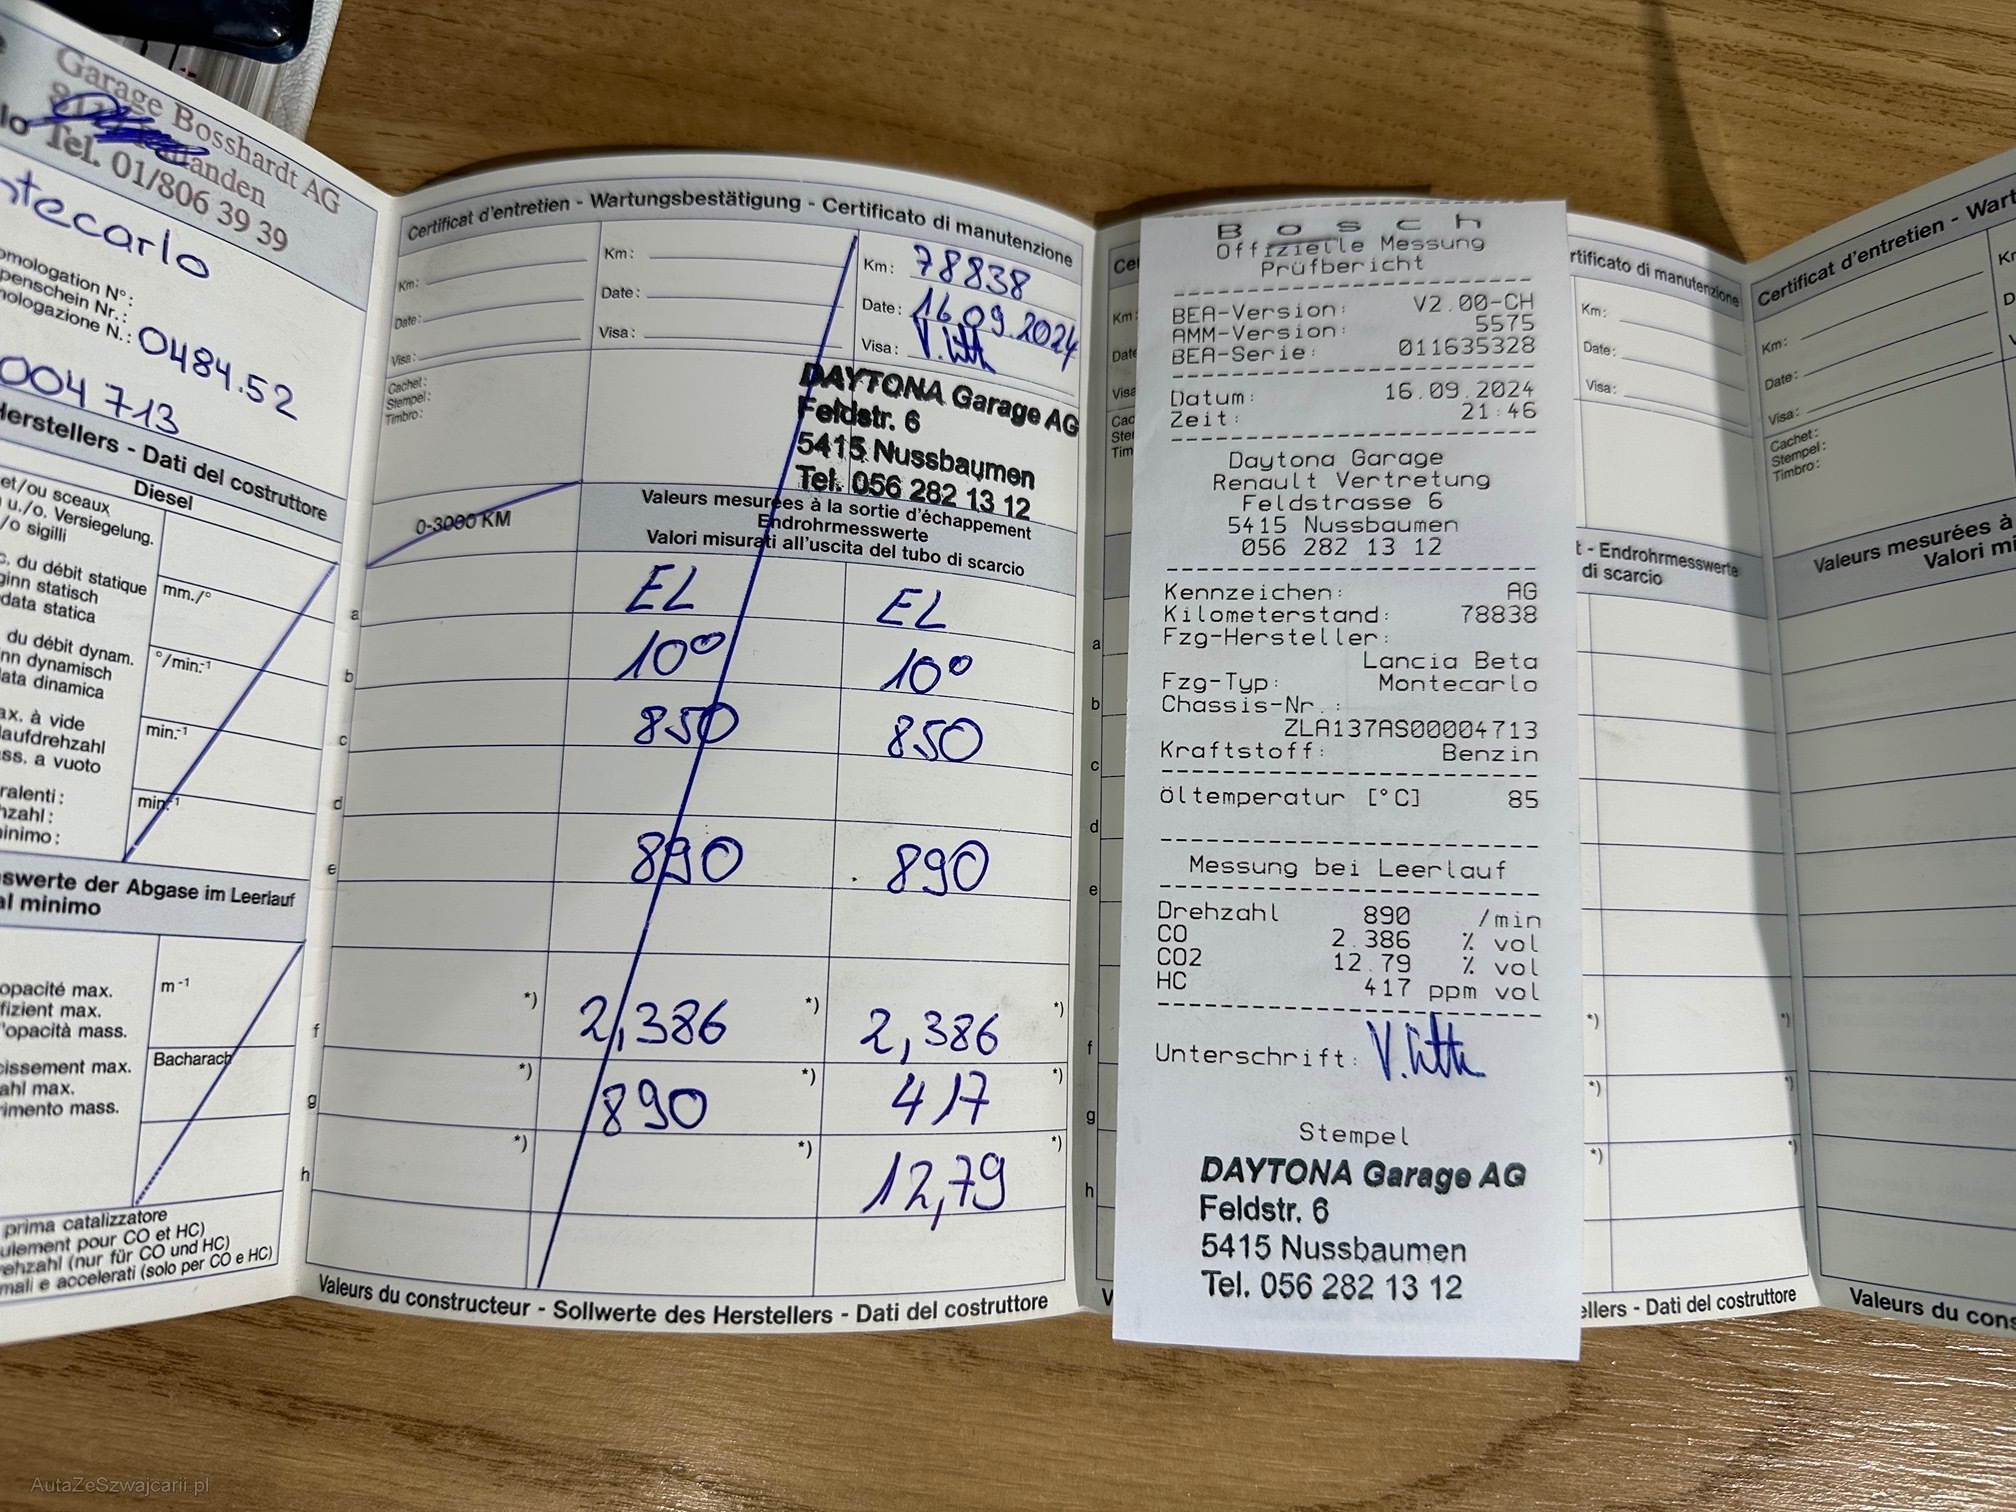 Garage Bosshardt AG
Tel. 01/806 39 39
ntecarlo
omologation N°:
penschein Nr.:
nologazione N.: 0484.52
004 713
Herstellers - Dati del costruttore
et/ou sceaux
u./o. Versiegelung.
/o sigilli
Diesel
c. du débit statique
ginn statisch
data statica
mm./°
du débit dynam.
nn dynamisch
ata dinamica
°/min.-1
ax. à vide
laufdrehzahl
ss. a vuoto
min.-1
ralenti :
hzahl :
inimo :
min.-1
swerte der Abgase im Leerlauf
al minimo
opacité max.
fizient max.
'opacità mass.
m-1
cissement max.
ahl max.
rimento mass.
Bacharach
prima catalizzatore
ulement pour CO et HC)
rehzahl (nur für CO und HC)
mali e accelerati (solo per CO e HC)
Certificat d'entretien - Wartungsbestätigung - Certificato di manutenzione
Km:
Date:
Visa:
Cachet:
Stempel:
Timbro:
Km:
Date:
Visa:
Km: 78838
Date: 16.09.2024
Visa:
DAYTONA Garage AG
Feldstr. 6
5415 Nussbaumen
Tel. 056 282 13 12
0-3000 KM
Valeurs mesurées à la sortie d'échappement
Endrohrmesswerte
Valori misurati all'uscita del tubo di scarcio
a EL EL
b 10° 10°
c 850 850
d
e 890 890
f *) 2,386 *) 2,386 *)
g *) 890 *) 417 *)
h *) *) 12,79 *)
Valeurs du constructeur - Sollwerte des Herstellers - Dati del costruttore
Bosch
Offizielle Messung
Prüfbericht
BEA-Version: V2.00-CH
AMM-Version: 5575
BEA-Serie: 011635328
Datum: 16.09.2024
Zeit: 21:46
Daytona Garage
Renault Vertretung
Feldstrasse 6
5415 Nussbaumen
056 282 13 12
Kennzeichen: AG
Kilometerstand: 78838
Fzg-Hersteller:
Lancia Beta
Fzg-Typ: Montecarlo
Chassis-Nr.:
ZLA137AS00004713
Kraftstoff: Benzin
öltemperatur [°C] 85
Messung bei Leerlauf
Drehzahl 890 /min
CO 2.386 % vol
CO2 12.79 % vol
HC 417 ppm vol
Unterschrift:
Stempel
DAYTONA Garage AG
Feldstr. 6
5415 Nussbaumen
Tel. 056 282 13 12
Cer
Km
Date
Visa
Cac
Ste
Tim
a
b
c
d
e
f
g
h
V
rtificato di manutenzione
Km:
Date:
Visa:
t - Endrohrmesswerte
di scarcio
*) *)
*) *)
*) *)
ellers - Dati del costruttore
Certificat d'entretien - Wart
Km:
Date:
Visa:
Cachet:
Stempel:
Timbro:
Valeurs mesurées à
Valori mi
Valeurs du cons
AutaZeSzwajcarii.pl